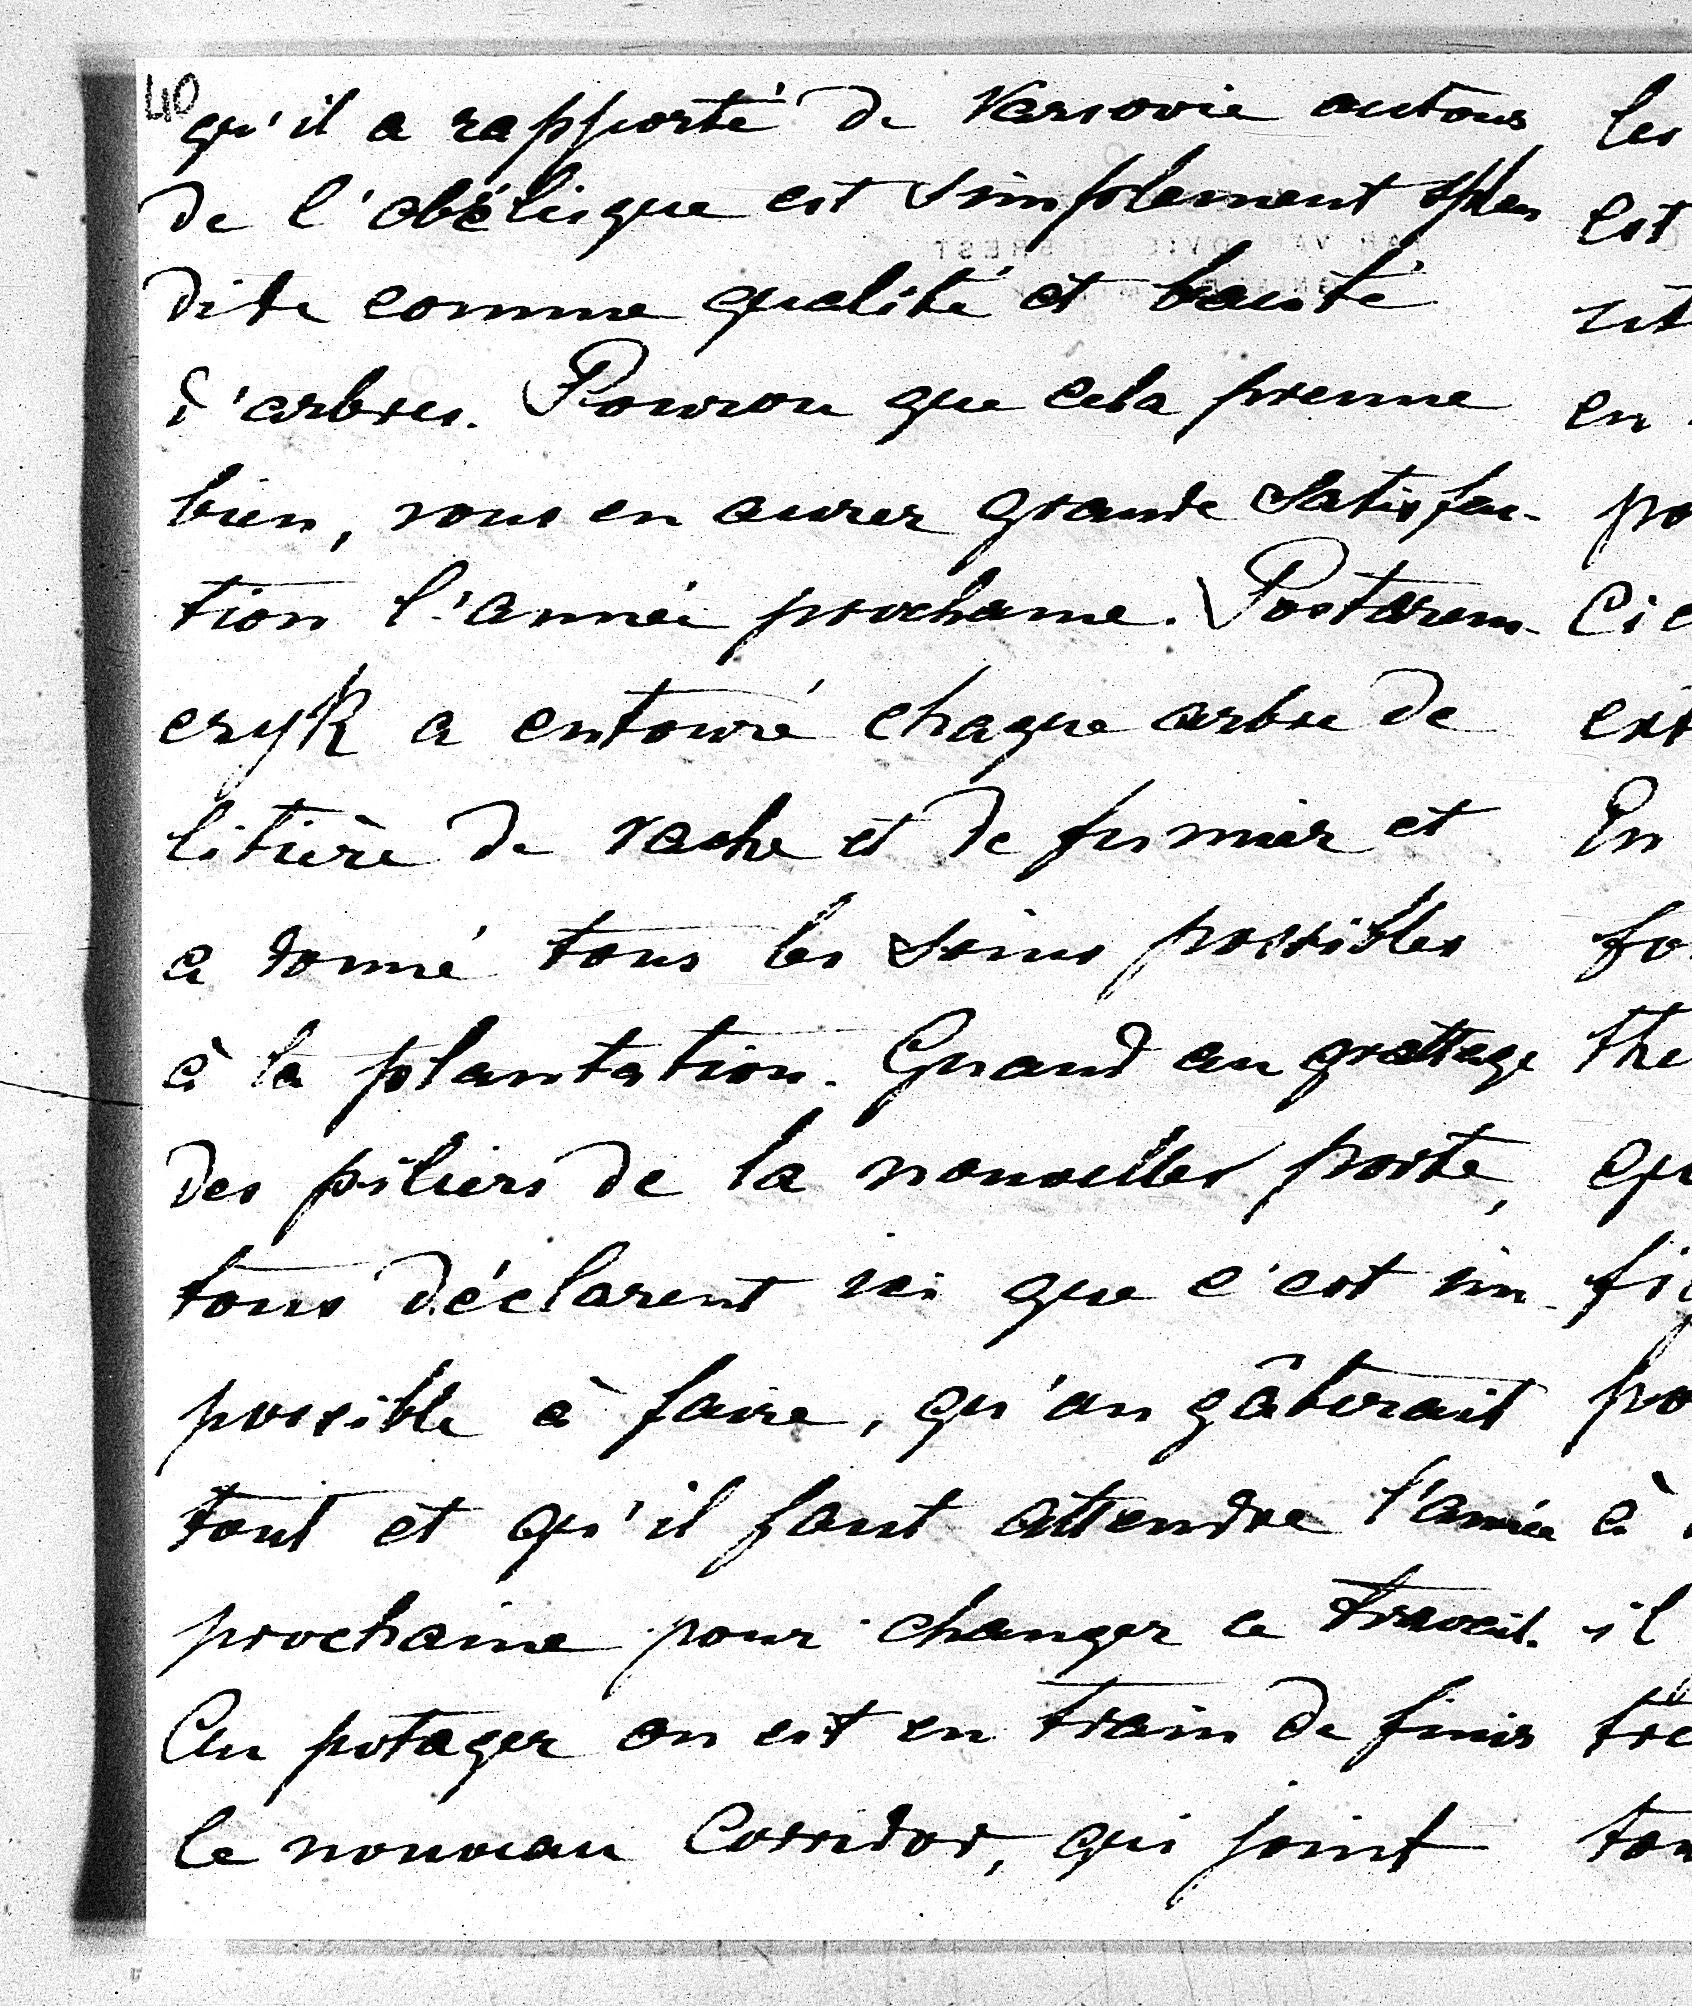 40
qu'il a rapporté de Varsovie autour
de l'obélisque est simplement splen
dide comme qualité et beauté
d'arbres. Pourvu que cela prenne
bien, vous en aurez grande satisfac-
tion l'année prochaine. Postarem-
czyk a entouré chaque arbre de
litière de vache et de fumier et
a donné tous les soins possibles
à la plantation. Quand au grattage
des piliers de la nouvelles porte,
tous déclarent ici que c'est im-
possible à faire, qu'on gâterait
tout et qu'il faut attendre l'année
prochaine pour changer ce travail.
Au potager on est en train de finir
le nouveau Corridor, qui joint
les
est
en
po
Cie
ext
En
fo
the
qu
fi
po
à
il
tre
tou